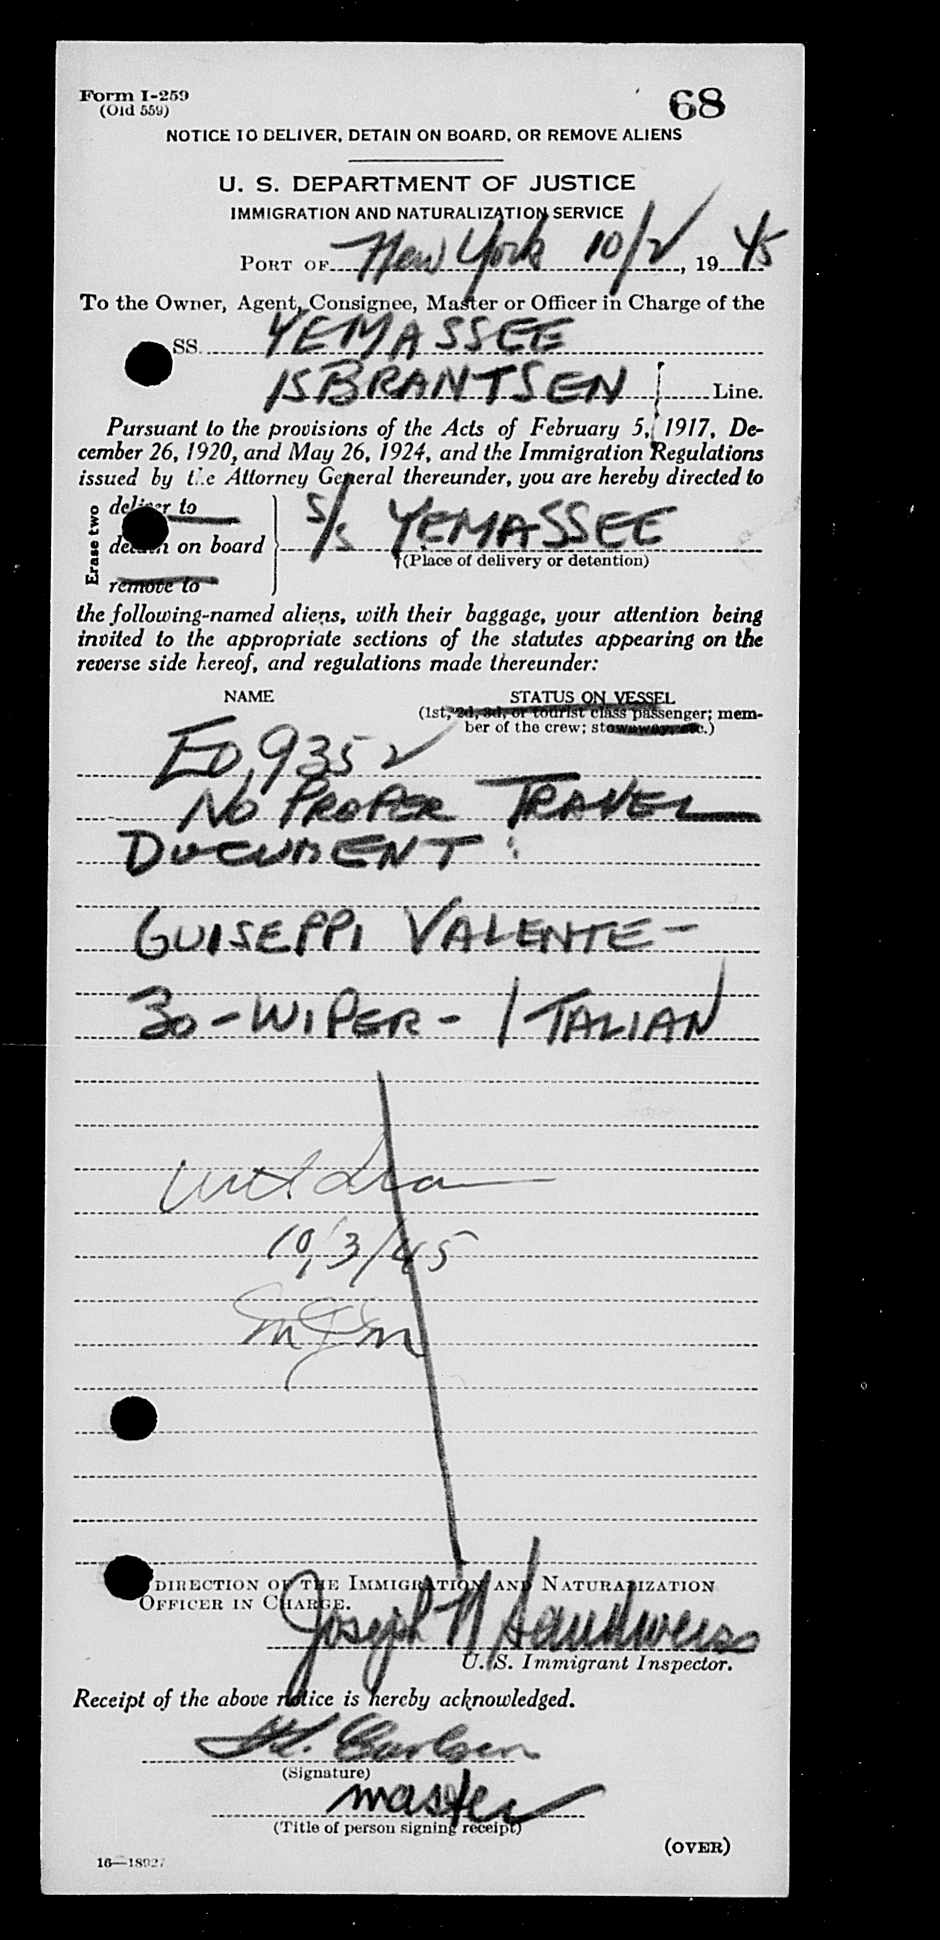 Form I-259
(Old 559)
68
NOTICE TO DELIVER, DETAIN ON BOARD, OR REMOVE ALIENS
U. S. DEPARTMENT OF JUSTICE
IMMIGRATION AND NATURALIZATION SERVICE
PORT OF New York 10/2, 1945
To the Owner, Agent, Consignee, Master or Officer in Charge of the
SS. YEMASSEE
ISBRANTSEN Line.
Pursuant to the provisions of the Acts of February 5, 1917, De-
cember 26, 1920, and May 26, 1924, and the Immigration Regulations
issued by the Attorney General thereunder, you are hereby directed to
Erase two
deliver to
detain on board
remove to
S/S YEMASSEE
(Place of delivery or detention)
the following-named aliens, with their baggage, your attention being
invited to the appropriate sections of the statutes appearing on the
reverse side hereof, and regulations made thereunder:
NAME STATUS ON VESSEL
(1st, 2d, 3d, or tourist class passenger; mem-
ber of the crew; stowaway, etc.)
EO, 9352
NO PROPER TRAVEL
DOCUMENT:
GUISEPPI VALENTE-
30-WIPER-ITALIAN
10/3/45
DIRECTION OF THE IMMIGRATION AND NATURALIZATION
OFFICER IN CHARGE.
Joseph N Sandweiss
U. S. Immigrant Inspector.
Receipt of the above notice is hereby acknowledged.
(Signature)
master
(Title of person signing receipt)
(OVER)
16—18927